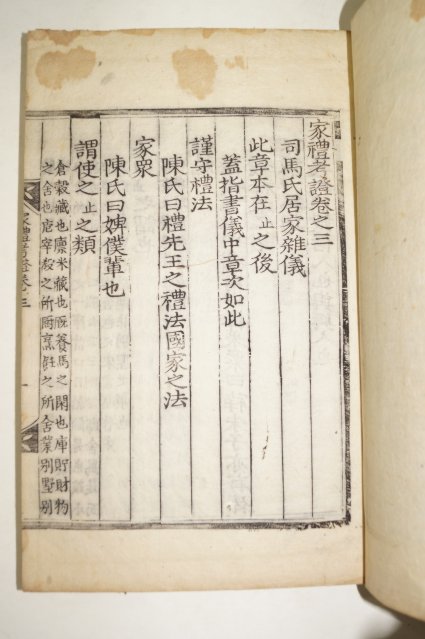 家禮考證卷之三
司馬氏居家雜儀
此章本在止之後
蓋指書儀中章次如此
謹守禮法
陳氏曰禮先王之禮法國家之法
家眾
陳氏曰婢僕輩也
謂使之止之類
倉穀藏也廩米藏也廐養馬之閑也庫貯財物
之舍也庖宰殺之所厨烹飪之所舍業別墅別
家禮考證卷三